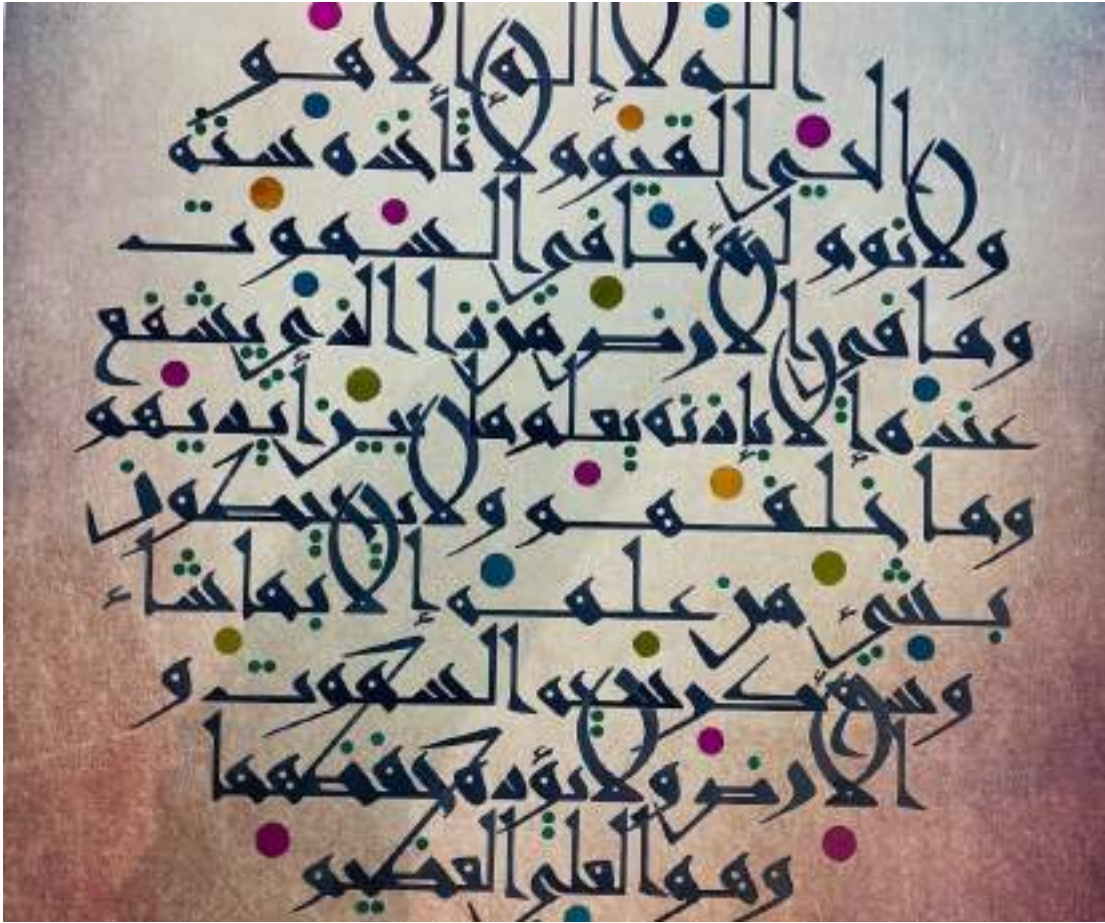 الله لا إله إلا هو
الحي القيوم لا تأخذه سنة
ولا نوم له ما في السموت
وما في الأرض من ذا الذي يشفع
عنده إلا بإذنه يعلم ما بين أيديهم
وما خلفهم ولا يحيطون
بشيء من علمه إلا بما شاء
وسع كرسيه السموت و
الأرض ولا يؤده حفظهما
وهو العلي العظيم